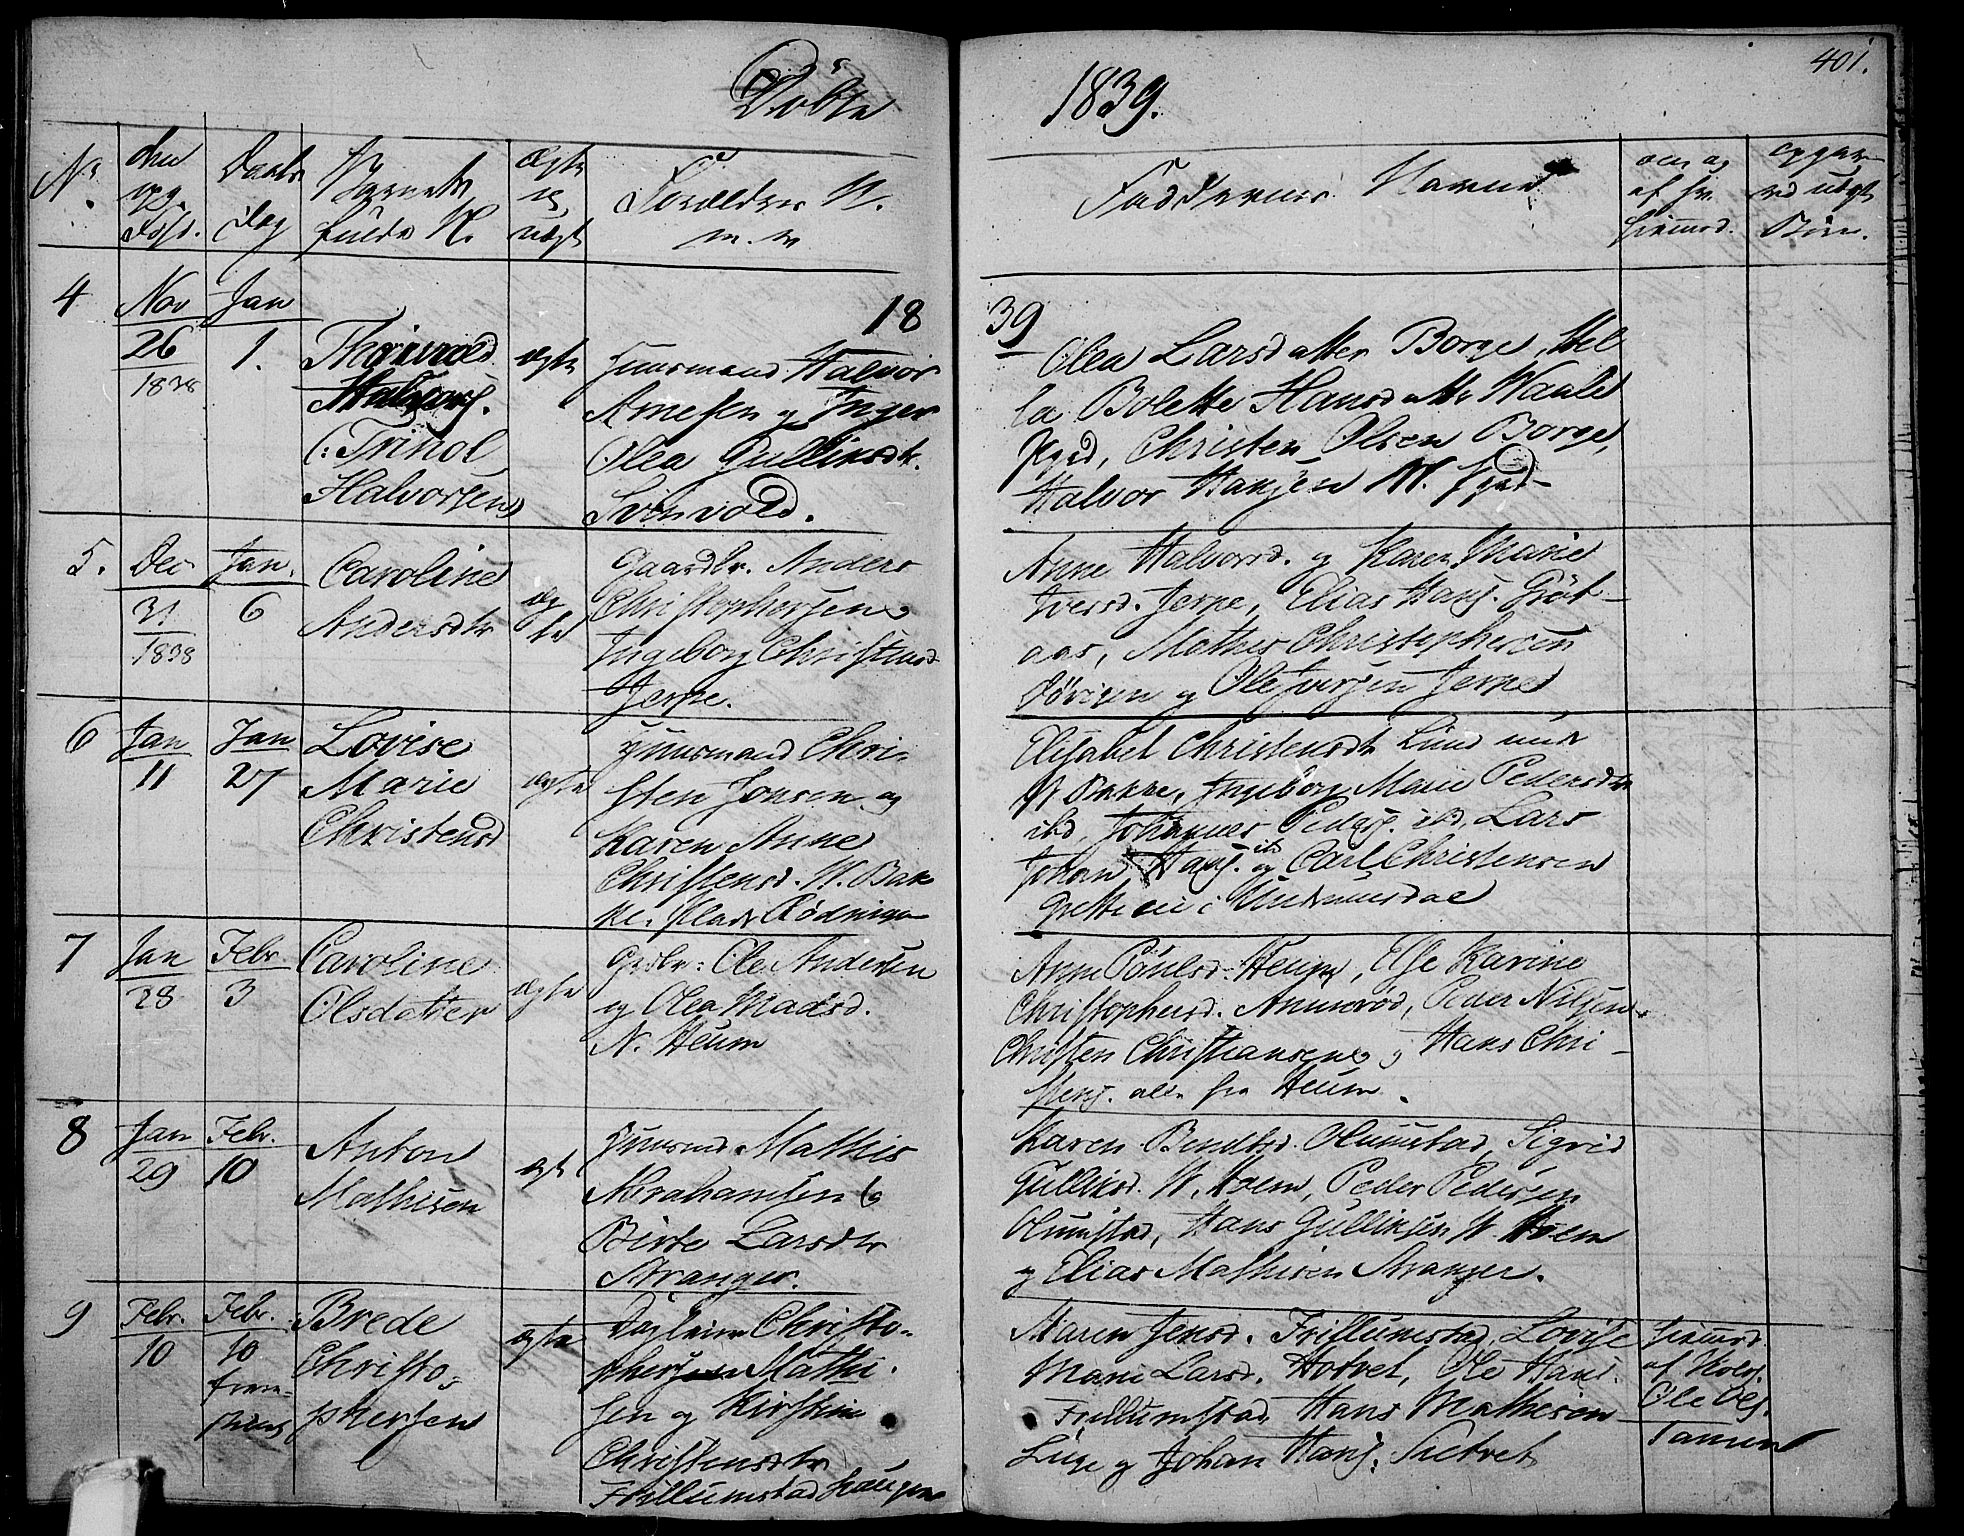 Døbte
1839.
401.
No.
den
Daabs
dag
Barnets
fulde N.
ægte
uægt
Forældres N.
m. m
Faddernes Navne
om og
af
hjemd.
ved uægt
Børn.
4
Nov
26
1838
Jan
1.
Thorvald
Halvors.
(: Trinol
Halvorsen
ægte
18
Huusmand Halvor
Arnesen og Inger
Olea Gulliksdtr.
Svinvold.
39
Olea Larsdatter Borge, Hel
la Bolette Hansdattr Waale
Christen Olsen Borge,
Halvor Hansen W.
5.
Dec
31
1838
Jan.
6
Caroline
Andersdtr
æg
te
Gaardbr. Anders
Christophersen
Ingeborg Christensd
Jerpe.
Anne Halvorsd. og Karen Marie
Iversd. Jerpe, Elias Hans. Grøt-
aas, Mathes Christophersen
og Ole Iversen Jerpe
6
Jan
11
Jan
27
Lovise
Marie
Christensd
ægte
Huusmand Chri-
sten Jonsen og
Karen Anne
Christensd. W. Bak
ke.
Elisabet Christensdtr Lund
W Bakke, Ingeborg Marie Pedersdtr
ibd, Johannes Peders. ibd, Lars
Johan Hans. ibd og Carl Christensen
7
Jan
28
Febr.
3
Caroline
Olsdatter
ægte
Grdbr: Ole Andersen
og Olea Madsd.
N. Heum
Anne Paulsd. Heum, Else Karine
Christophersd. Ammerød, Peder Nilsen
Christen Christiansen og Hans Chri-
stens. alle fra Heum.
8
Jan
29
Febr.
10
Anton
Mathisen
ægt
Huusmd Mathis
Abrahamsen og
Birte Larsdtr
Stranger.
Karen Bendtsd. Olumstad, Sigrid
Gulliksd. W. Hoem, Peder Pedersen
Olumstad, Hans Gulliksen W. Hoem
og Elias Mathisen Stranger.
9
Febr.
10
Febr.
10
Brede
Christo-
phersen
ægte
Christo-
phersen Mathi-
sen og Kirstine
Christensdtr
Frillumstad
Maren Jensd. Frillumstad, Lovise
Marie Larsd. Hotvet, Ole Hans.
Frillumstad, Hans Mathisen
og Johan Hans.
hjemd.
af
Ole Ols.